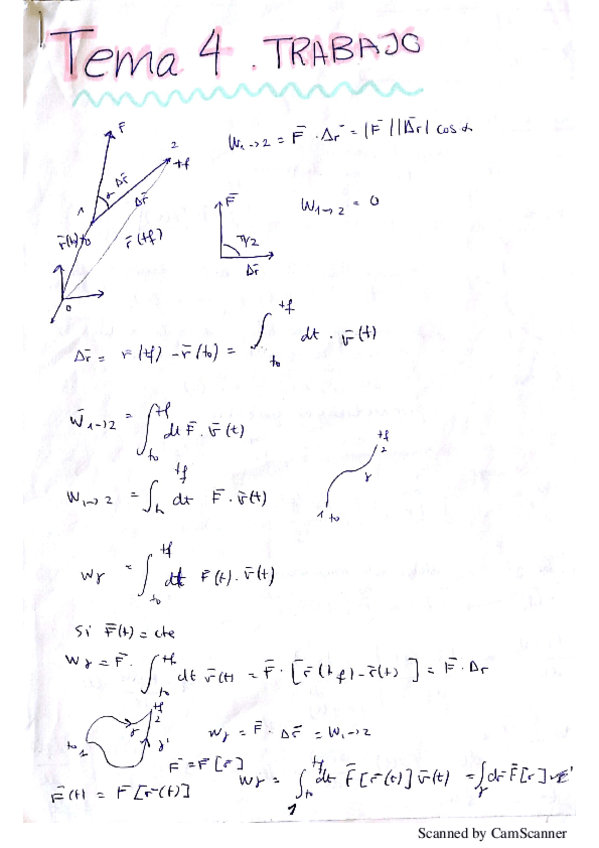 Tema 4. TRABAJO
F
2
tf
W₁→₂ = F̄ · Δr̄ = |F̄||Δr̄| cos α
α Δr̄
Δr̄
1
r̄(t₀) t₀
r̄(tf)
0
F̄
π/2
Δr̄
W₁→₂ = 0
Δr̄ = r(tf) - r̄(t₀) = ∫t₀^tf dt · v̄(t)
W₁→₂ = ∫t₀^tf dt F̄ · v̄(t)
W₁→₂ = ∫t₀^tf dt F̄ · v̄(t)
tf
2
γ
1 t₀
Wγ = ∫t₀^tf dt F̄(t) · v̄(t)
Si F̄(t) = cte
Wγ = F̄ · ∫t₀^tf dt v̄(t) = F̄ · [r̄(tf) - r̄(t₀)] = F̄ · Δr
tf
2
γ
t₀ 1
γ'
Wγ = F̄ · Δr̄ = W₁→₂
F̄ = F̄[r̄]
F̄(t) = F[r̄(t)]
Wγ = ∫t₀^tf dt F̄[r̄(t)] v̄(t) = ∫γ dr̄ F̄[r]
1
Scanned by CamScanner